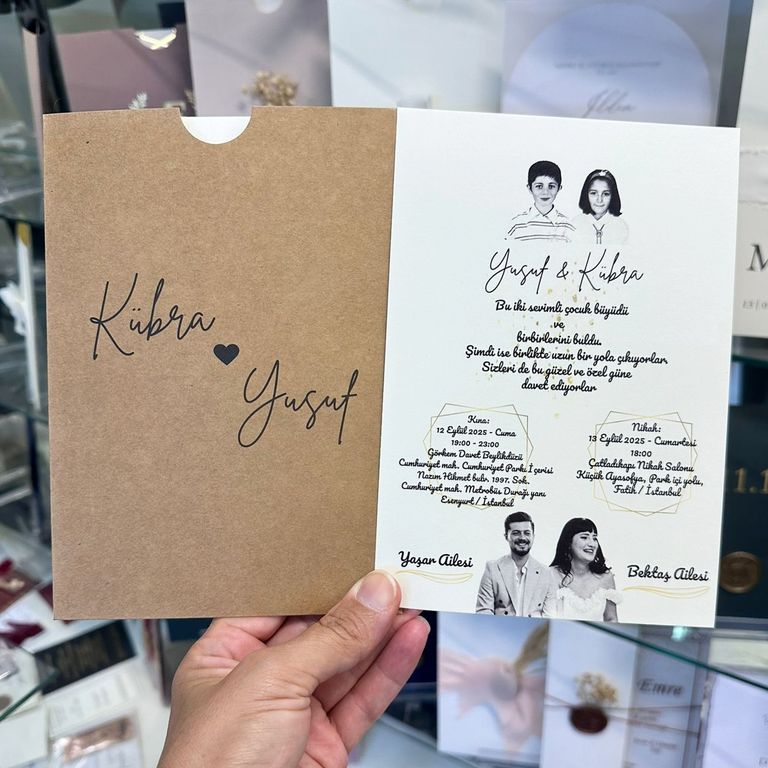 Kübra
Yusuf
Yusuf & Kübra
Bu iki sevimli çocuk büyüdü
ve
birbirlerini buldu.
Şimdi ise birlikte uzun bir yola çıkıyorlar.
Sizleri de bu güzel ve özel güne
davet ediyorlar
Kına:
12 Eylül 2025 - Cuma
19:00 - 23:00
Görkem Davet Beylikdüzü
Cumhuriyet mah. Cumhuriyet Parkı İçerisi
Nazım Hikmet bulv. 1997. Sok.
Cumhuriyet mah. Metrobüs Durağı yanı
Esenyurt / İstanbul
Nikah:
13 Eylül 2025 - Cumartesi
18:00
Çatladıkapı Nikah Salonu
Küçük Ayasofya, Park içi yolu,
Fatih / İstanbul
Yaşar Ailesi
Bektaş Ailesi
M
1.1
Emre